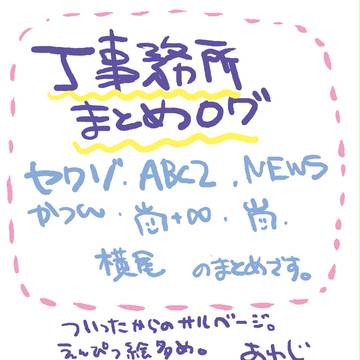 J事務所
まとめログ
セクゾ.ABCZ.NEWS
かつん.嵐+∞.嵐.
横尾のまとめです。
ついったからのサルベージ。
えんぴつ絵多め。あわじ